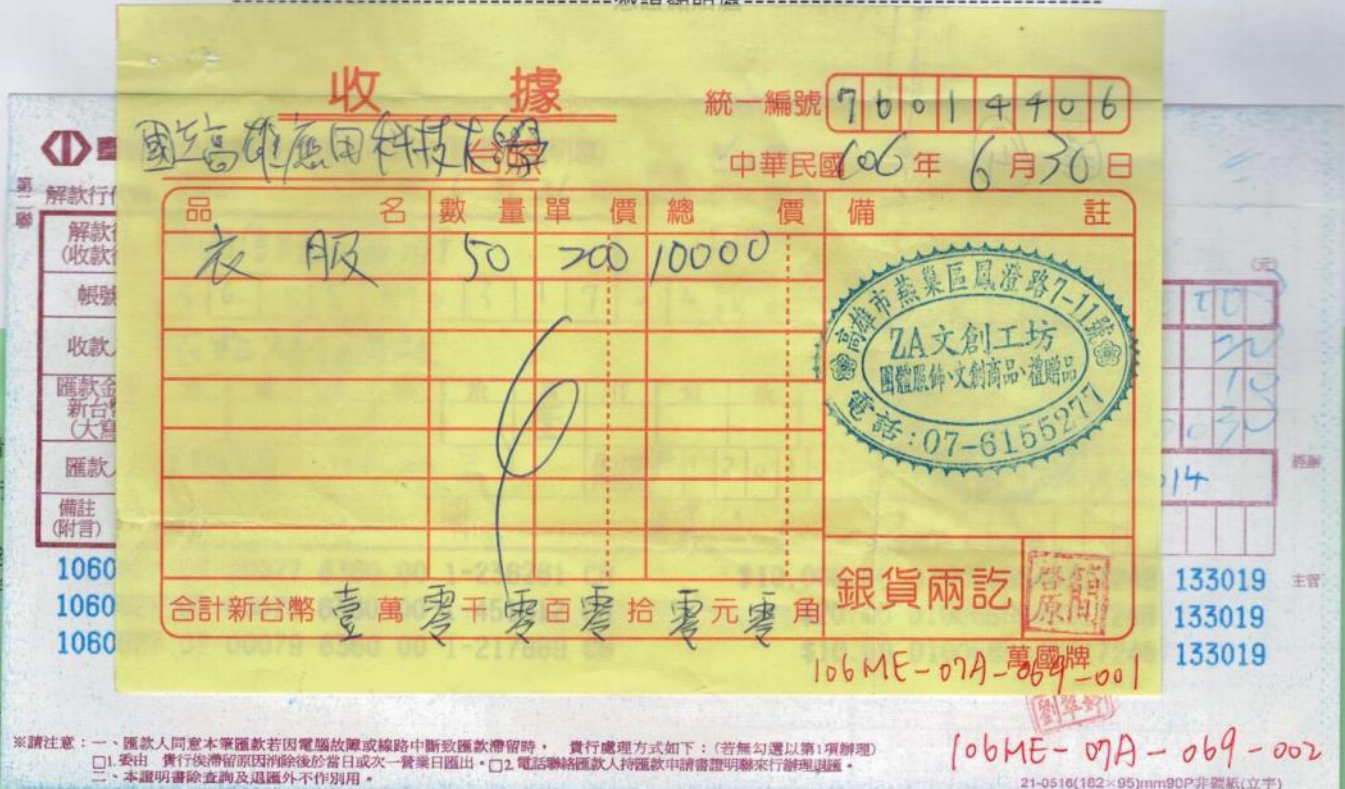 憑證黏貼處
收 據
統一編號 76014406
國立高雄應用科技大學 台照
中華民國 106 年 6 月 30 日
品名 數量 單價 總價 備註
衣服 50 200 10000
高雄市燕巢區鳳澄路7-11號
ZA文創工坊
團體服飾、文創商品、禮贈品
電話:07-6155277
合計新台幣 壹 萬 零 千 零 百 零 拾 零 元 零 角
銀貨兩訖
萬國牌
106ME-07A-069-001
第二聯
解款行
(收款行
帳號
收款人
匯款金
新台幣
(大寫
匯款人
備註
(附言)
014
經辦
主管
1060 133019
1060 133019
1060 133019
※請注意:一、匯款人同意本筆匯款若因電腦故障或線路中斷致匯款滯留時, 貴行處理方式如下:(若無勾選以第1項辦理)
□1.委由 貴行俟滯留原因消除後於當日或次一營業日匯出。□2.電話聯絡匯款人持匯款申請書證明聯來行辦理退匯。
二、本證明書除查詢及退匯外不作別用。
106ME-07A-069-002
21-0516(182×95)mm90P非碳紙(立宇)